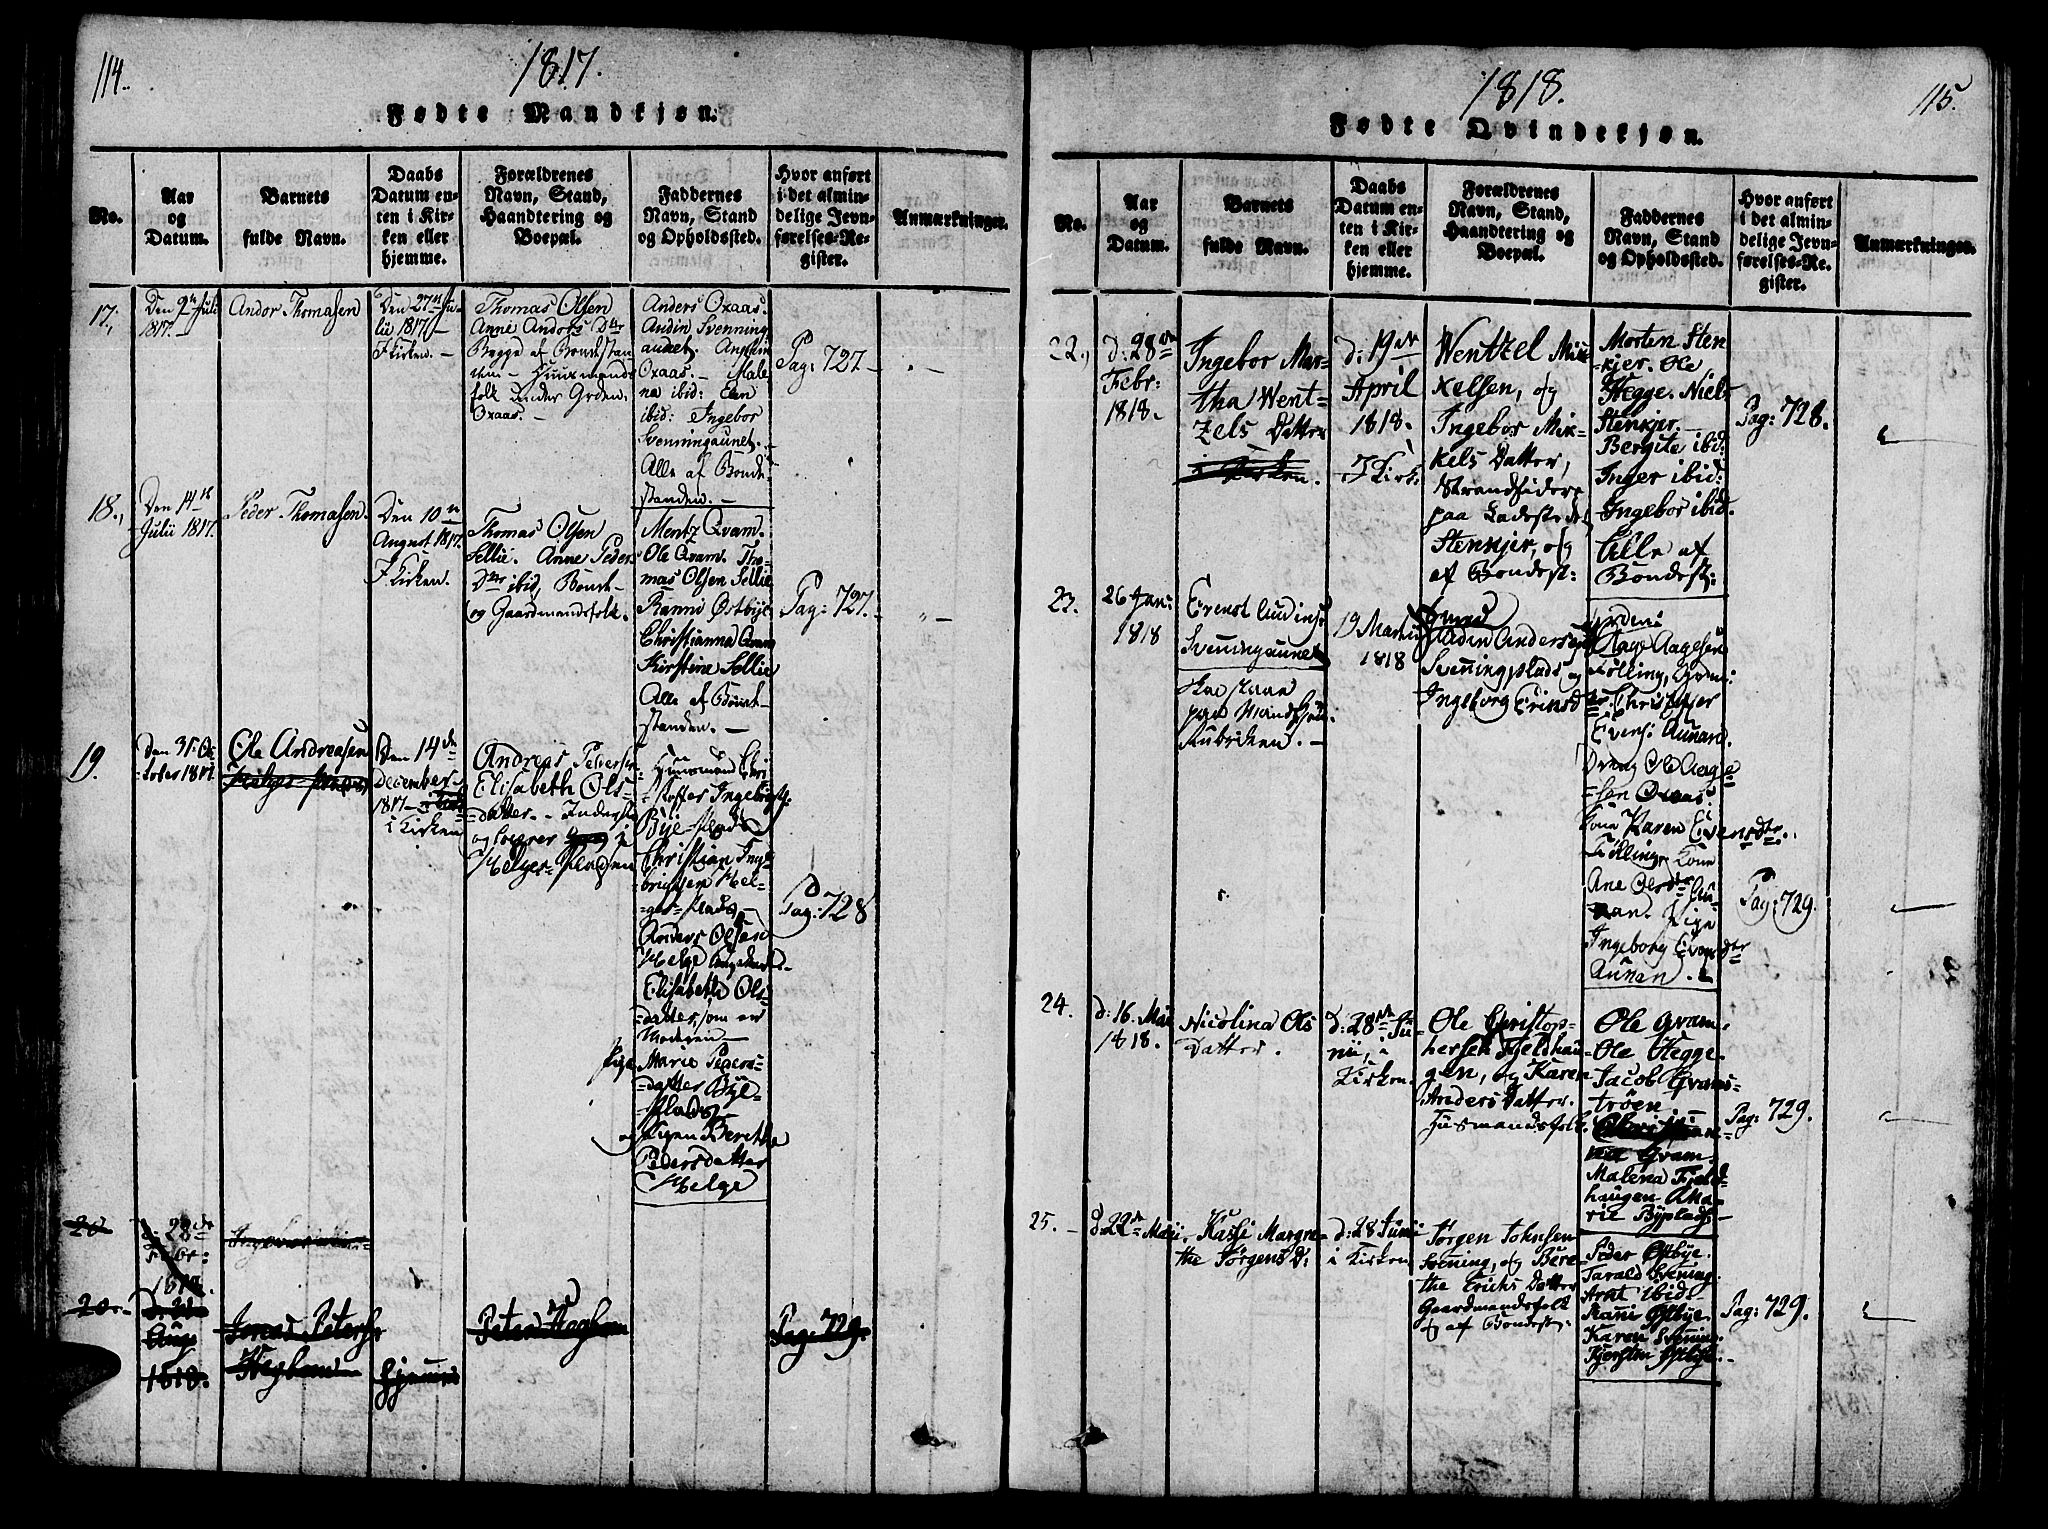 114.
1817.
Fødte Mandkjøn.
No.
Aar
og
Datum.
Barnets
fulde Navn.
Daabs
Datum en-
ten i Kir-
ken eller
hjemme.
Forældrenes
Navn, Stand,
Haandtering og
Boepæl.
Faddernes
Navn, Stand
og Opholdssted.
Hvor anført
i det almin-
delige Jevn-
førelses-Re-
gister.
Anmærkninger.
17.,
Den 2n Juli
1817.
Andor Thomasen
Den 27n Ju-
lii 1817
I Kirken. –
Thomas Olsen
Anne Andors Dtr
Begge af Bondestan
den – Huusmands
folk under Grden
Oxaas. –
Anders Oxaas.
Audin Svenning
aunet.
Oxaas. – Male
na ibid: Elen
ibid: Ingebor
Svenningaunet. –
Alle af Bonde-
standen. –
Pag: 727 –
18.,
Den 14n
Julii 1817.
Peder Thomasen.
Den 10n
August 1817.
I Kirken.
Thomas Olsen
Sellie. Anne Peders
Dtr ibid, Bonde-
og Gaardmandsfolk.
Mentz Qvam.
Ole Qvam. Tho-
mas Olsen Sellie
Ranni Østbye
Christianna Qvam
Kirstine Sellie
Alle af Bonde-
standen. –
Pag: 727. –
19.
Den 31. Oc-
tober 1817.
Ole Andreasen
Den 14de
December
1817
i Kirken
Andreas Pedersen
Elisabeth Ols-
datter – Inderster
og i
Helges-Pladsen
Huusmand Chri
stoffer Ingebrigts:
Bye-Plads
Christian Inge
brigtsen Hel-
ges-Plads –
Anders Olsen
Helge
Elisabeth Ols-
datter, som er
Moderen –
Pige
Marie Peders-
datter Bye-
Plads
og Pigen Berethe
Pedersdatter
Helge
Pag: 728
20
d: 28de
Febr:
1818.
20.
Aug
1818.
Jonas Peters:
Hegham
Hjemme
Peter Hegham
Pag: 729.
115.
1818.
Fødte Qvindekjøn.
No.
Aar
og
Datum.
Barnets
fulde Navn.
Daabs
Datum en-
ten i Kir-
ken eller
hjemme.
Forældrenes
Navn, Stand,
Haandtering og
Boepæl.
Faddernes
Navn, Stand
og Opholdssted.
Hvor anført
i det almin-
delige Jevn-
førelses-Re-
gister.
Anmærkninger.
22.,
d: 28de
Febr:
1818.
Ingebor Mar-
tha Went-
zels Datter
i Kirken.
d: 19de
April
1818.
I Kirk.
Wentzel Mik-
kelsen, og
Ingebor Mik-
kels Datter,
Strandsidere
paa Ladestedet
Stenkjer, og
af Bondest:
Morten Sten
kjer. Ole
Hegge. Niels
Stenkjer. –
Bergite ibid:
Inger ibid:
Ingebor ibid.
Alle af
Bondest:
Pag: 728.
23.
26 Jan:
1818
Evenst Audins:
Svenningaunet
Skal staae
paa Mandkjøn
Rubriken. –
19 Martii
1818
Audin Andersen
Svenningplads og
Ingeborg Erinsd
Aage Aagesen
Følling,
Christopher
Evens: Aunan.
Dreng Ole Aage
-sen Oxaas
Kone Karen Evensdtr.
Følling. Kone
Ane Olsdtr Au-
nan. Pige
Ingeborg Evensdtr
Aunan.
Pag: 729.
24.
d: 16. Mai
1818.
Nicolina Ols
Datter.
d: 28de Ju-
nii, i
Kirken.
Ole Christop-
hersen Fjeldhau-
gen, og Karen
Anders Datter.
Husmandsfolk.
Ole Qvam.
Ole Hegge.
Jacob Qvams-
trøen
Qvam.
Malena Fjeld-
haugen Ma-
rie Byplads –
Pag: 729.
25. –
d. 22de Maii.
Kassi Margre-
the Jørgens D:
d: 28 Junii
i Kirken
Jørgen Johnsen
Svening, og Bere-
the Erichs Datter
Gaardmandsfolk
og af Bondest:
Peder Østbye.
Tarald Svening.
Arnt ibid.
Ranni Østbye.
Karen Svening.
Kjersten Østbye. –
Pag: 729.